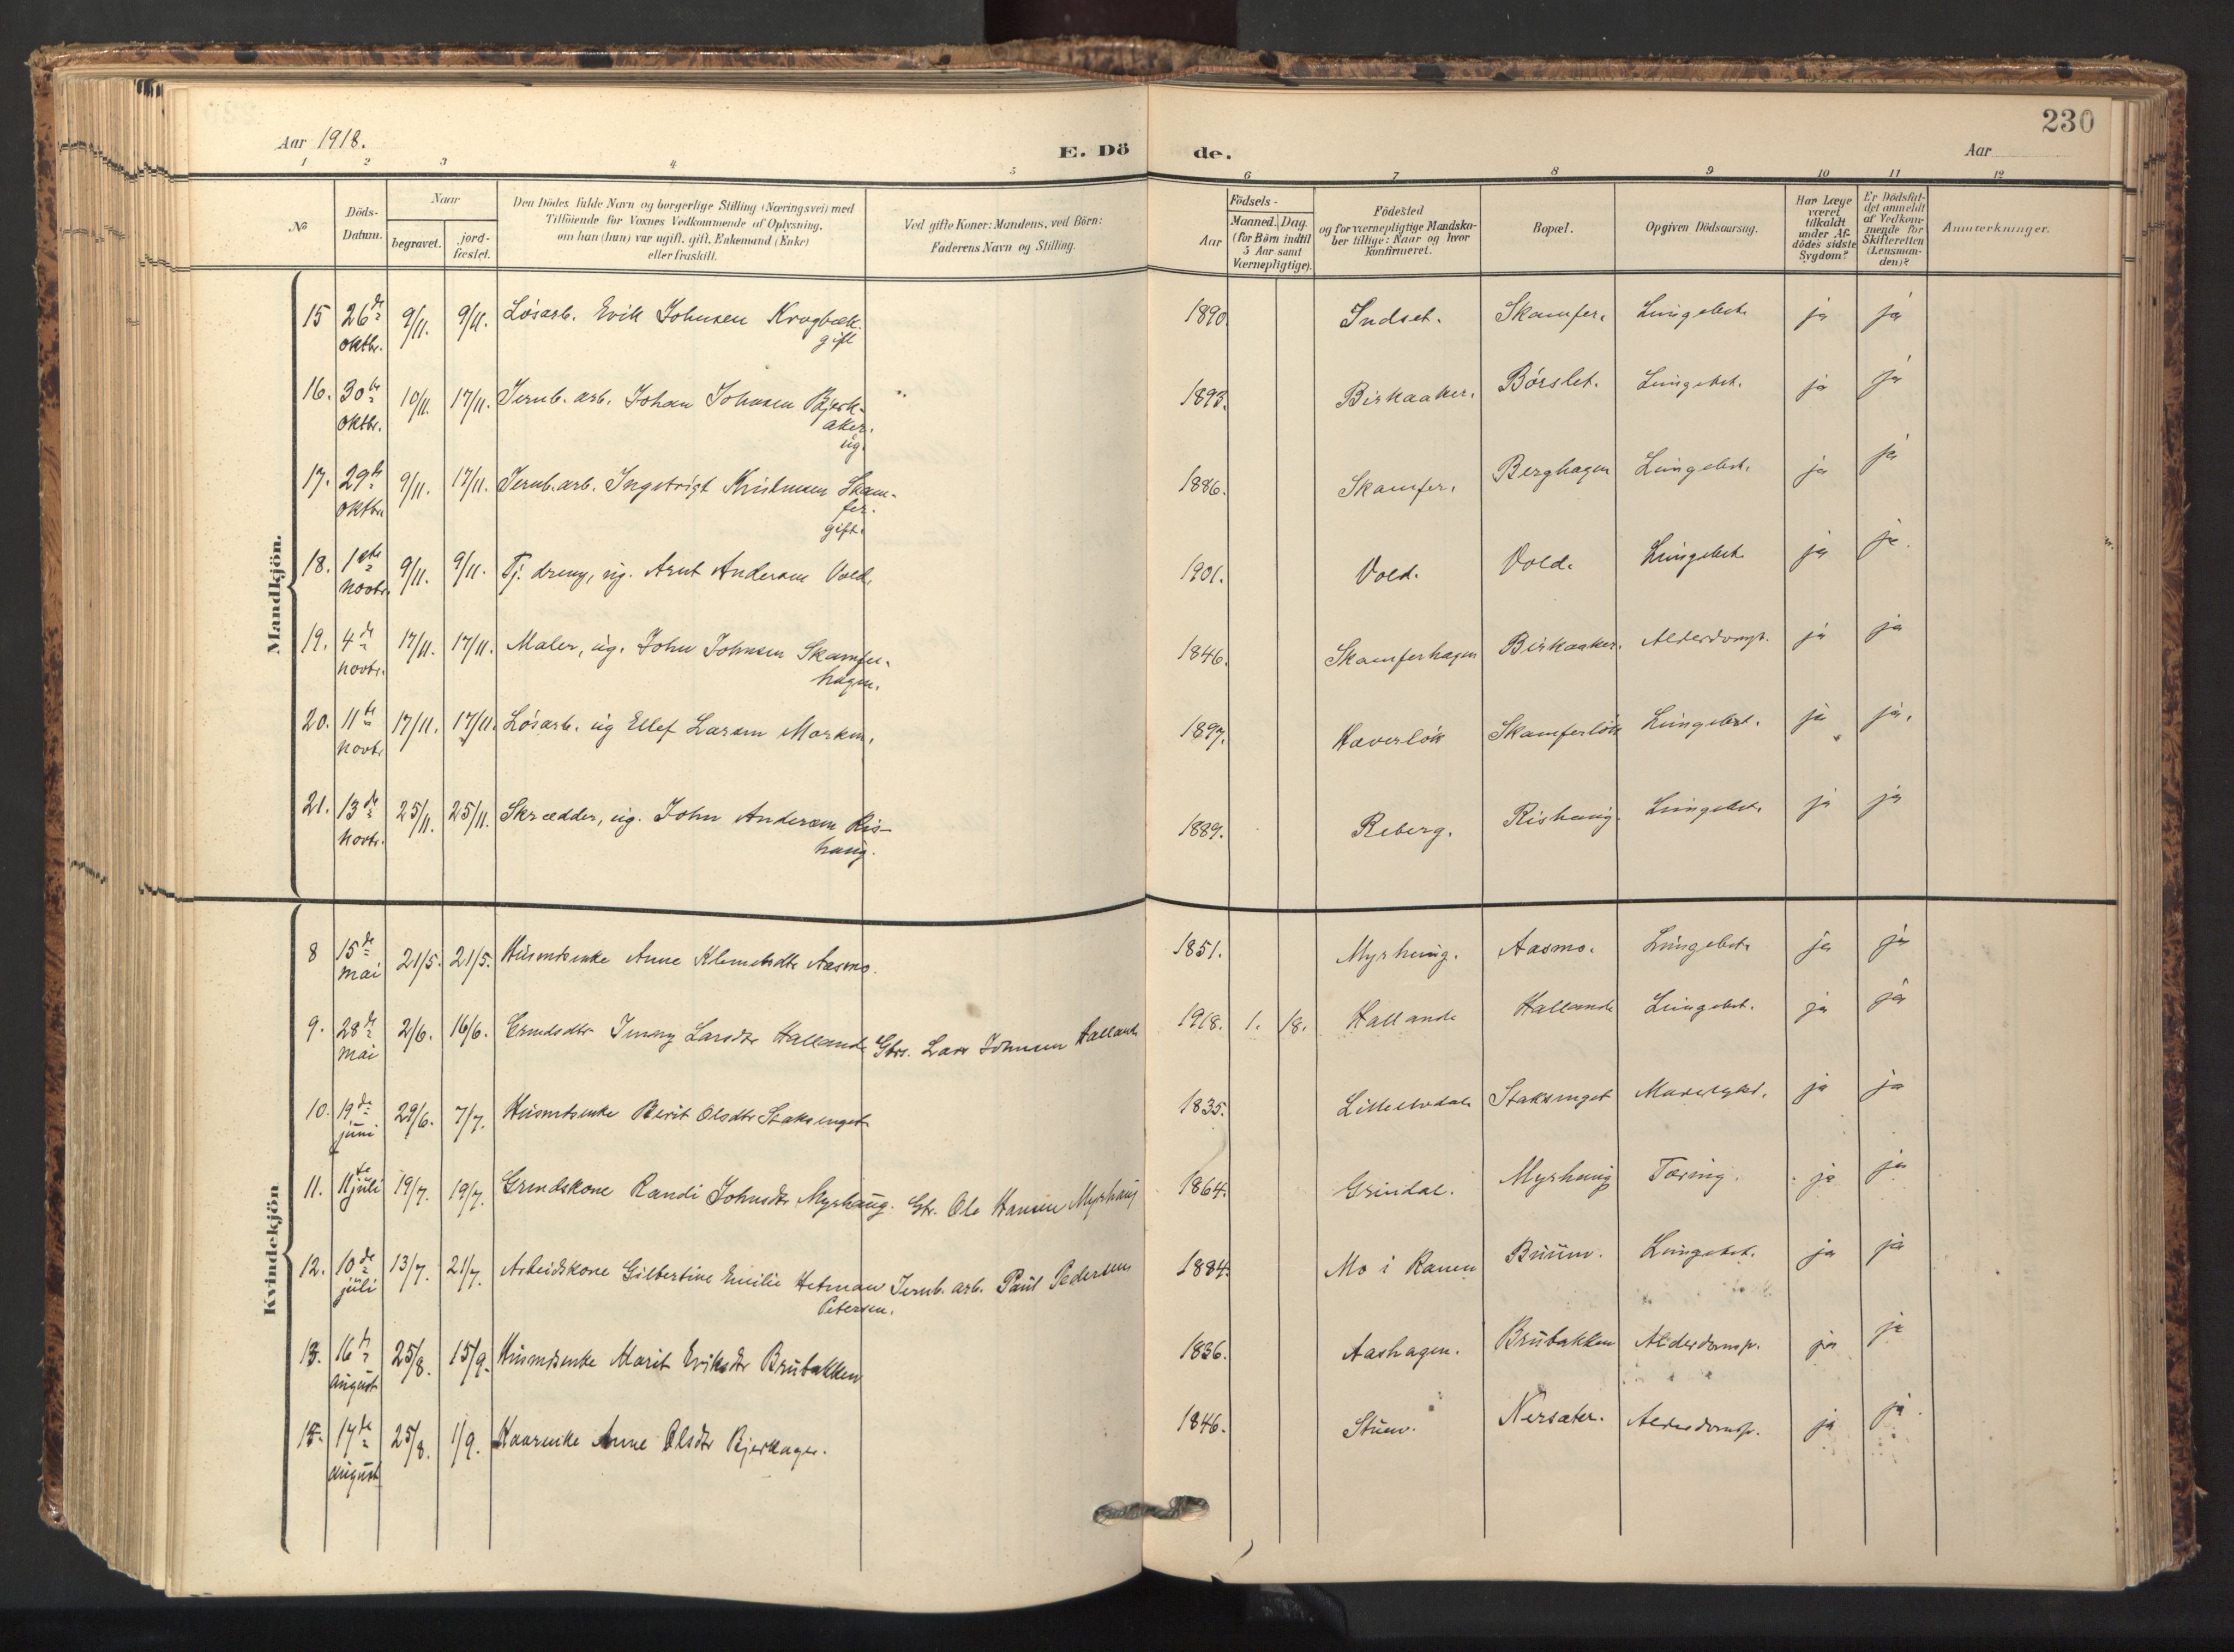 230
Aar 1918.
E. Dö de.
Aar
1 2 3 4 5 6 7 8 9 10 11 12
№
Döds-Datum.
Naar
begravet.
jord-fæstet.
Den Dödes fulde Navn og borgerlige Stilling (Næringsvei) med
Tilföiende for Voxnes Vedkommende af Oplysning,
om han (hun) var ugift, gift, Enkemand (Enke)
eller fraskilt.
Ved gifte Koner: Mandens, ved Börn:
Faderens Navn og Stilling.
Födsels-
Aar
Maaned. Dag.
(for Börn indtil
5 Aar samt
Værnepligtige).
Födested
og for værnepligtige Mandska-
ber tillige: Naar og hvor
konfirmeret.
Bopæl.
Opgiven Dödsaarsag.
Har Læge
været
tilkaldt
under Af-
dödes sidste
Sygdom?
Er Dödsfal-
det anmeldt
af Vedkom-
mende for
Skifteretten
(Lensman-
den)?
Anmærkninger.
Mandkjön.
15 26de oktbr. 9/11. 9/11. Lösarb. Erik Johnsen Krogbæk. gift 1890 Indset. Skamfer. Lungebet. ja ja
16. 30te oktbr. 10/11. 17/11. Jernb. arb. Johan Johnsen Bjerk-
aker. ug. " 1893. Birkaaker. Börslet. Lungebet. ja ja
17. 29de oktbr. 9/11. 17/11. Jernb. arb. Ingebrigt Kristensen Skam-
fer. gift. 1886. Skamfer. Berghagen Lungebet. ja ja
18. 1ste novbr. 9/11. 9/11. Tj. dreng, ug. Arnt Andersen Vold. 1901. Vold. Vold. Lungebet. ja ja.
19. 4de novbr. 17/11. 17/11. Maler, ug. John Johnsen Skamfer-
hagen. 1846. Skamferhagen Birkaaker. Alderdomsv. ja ja
20. 11te novbr. 17/11. 17/11. Lösarb. ug Ellef Larsen Morken. 1897. Haverlökk Skamferlökk Lungebet. ja ja.
21. 13de novbr. 25/11. 25/11. Skrædder, ug. John Andersen Ris-
haug. 1889. Reberg. Rishaug. Lungebet. ja ja
Kvindekjön
8 15de mai 21/5. 21/5. Husmdsenke Anne Klemetsdtr Aasmo. 1851. Myrhaug. Aasmo. Lungebet. ja ja
9. 28de mai 2/6. 16/6. Grmdsdtr Jenny Larsdtr Hallande Gbr. Lars Johnsen Hallande 1918. 1. 18. Hallande Hallande Lungebet. ja ja
10. 19de juni 29/6. 7/7. Husmdsenke Berit Olsdtr Staksenget 1835. Lilleelvdal. Staksenget ja ja
11. 11te juli 19/7. 19/7. Grmdskone Randi Johnsdtr Myrhaug. Gbr. Ole Hansen Myrhaug 1864. Grindal. Myrhaug Tæring. ja ja
12. 10de juli 13/7. 21/7. Arbeidskone Gilbertine Emilie Hetman
Petersen. Jernb. arb. Paul Pedersen 1884. Mo i Ranen Bruum. Lungebet. ja ja
13. 16de august 25/8. 15/9. Husmdsenke Marit Eriksdtr Brubakken 1836. Aashagen. Brubakken Alderdomsv. ja ja
15. 17de august 25/8. 1/9. Kaarenke Anne Olsdtr Bjerkager. 1846. Stuen. Nersæter. Alderdomsv. ja ja.